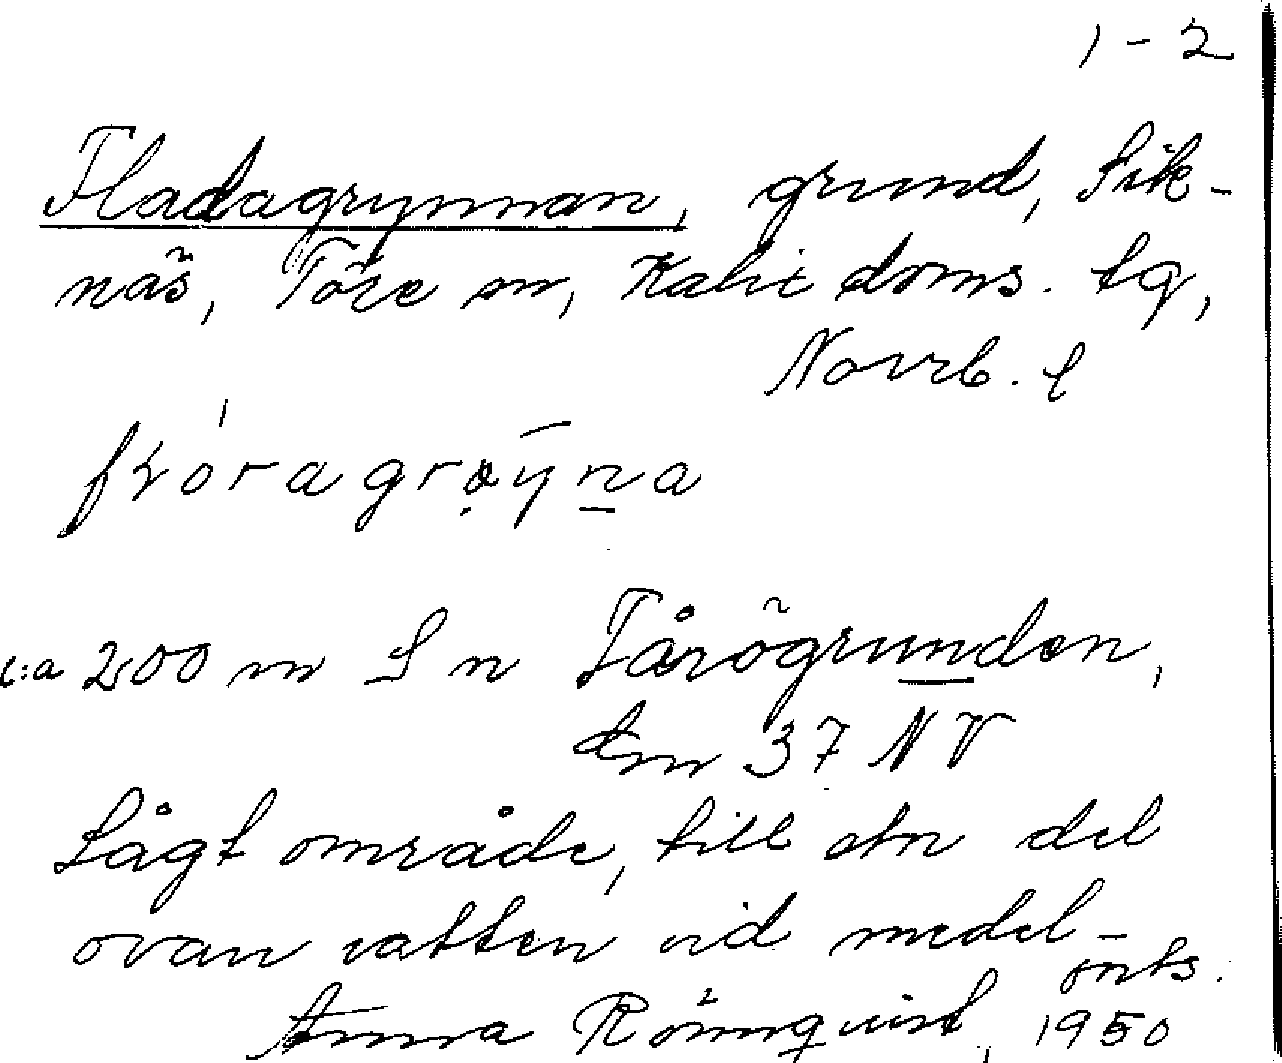 1-2
Fladagrynnan, grund, Sik-
näs, Töre sn, Kalix doms. tg,
Norrb. l
c:a 200 m S n Fårögrunden,
37 NV
Lågt område, till stn del
ovan vatten vid medel-
Anna Rönnquist, 1950